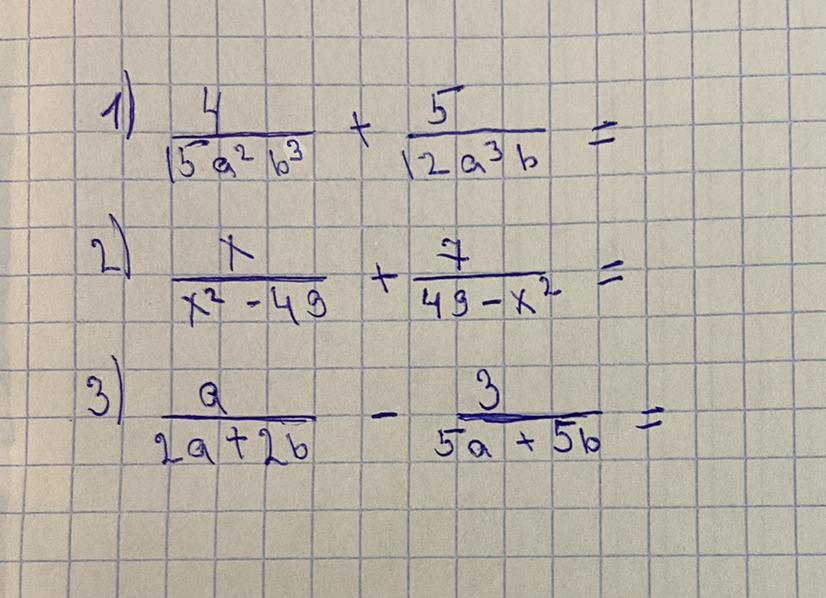 1) 4/(15a²b³) + 5/(12a³b) =
2) x/(x² - 49) + 7/(49 - x²) =
3) a/(2a + 2b) - 3/(5a + 5b) =